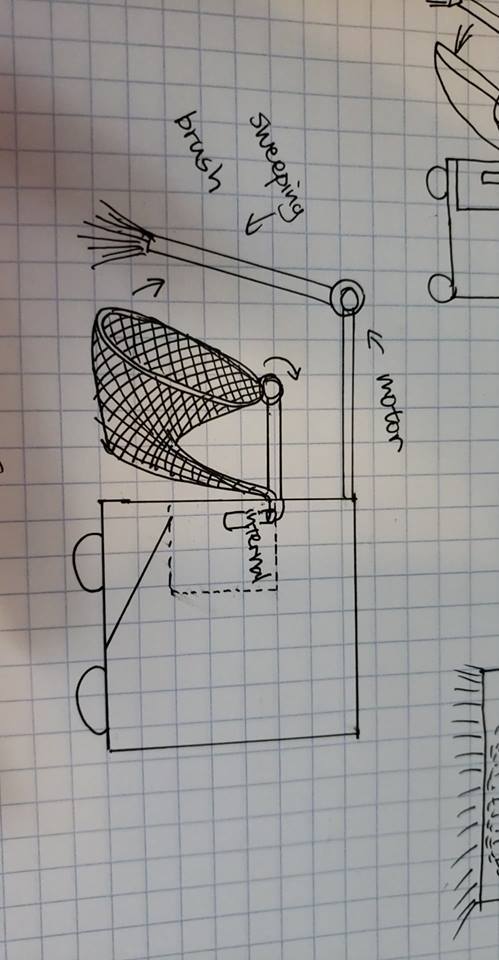 sweeping
brush
motor
internal